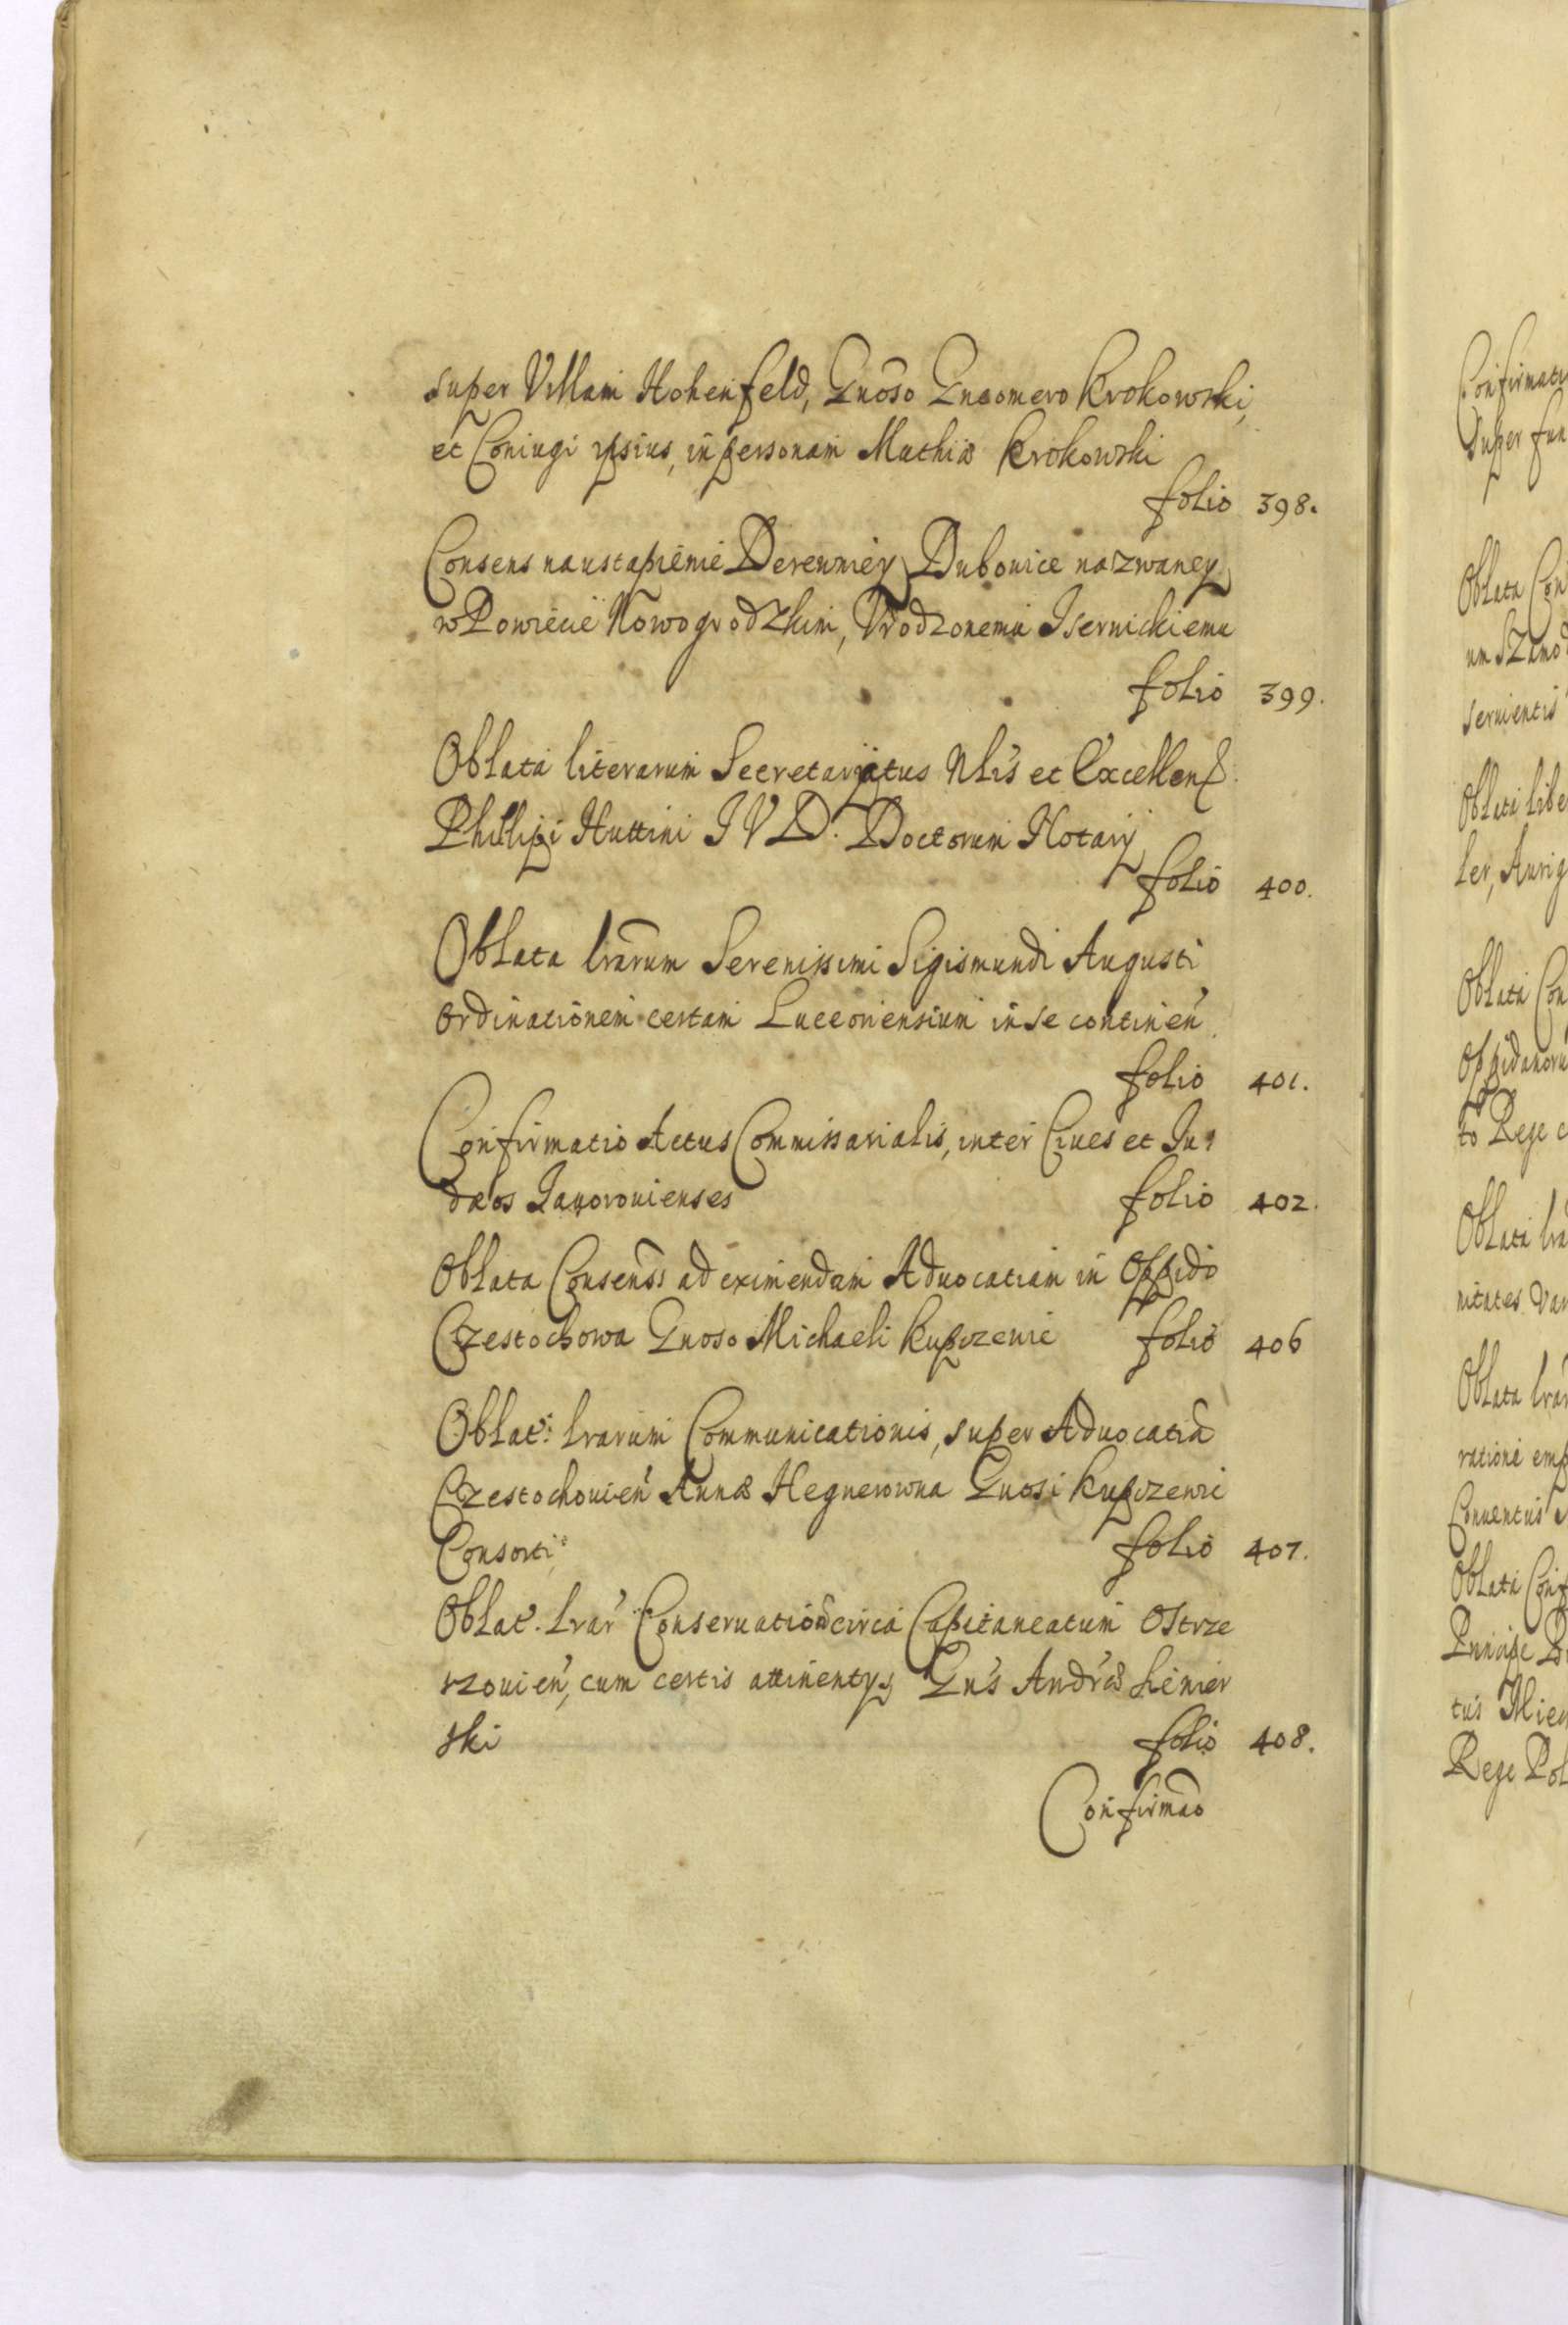 super Villam Hohenfeld, Gnoso Gneomero Krokowski,
et Coniugi ipsius, in personam Mathiæ Krokowski
folio 398.
Consens na ustąpienie Derewniey Dubowice nazwaney
w Powiecie Nowogrodzkim, Vrodzonemu Isernickiemu
folio 399.
Oblata literarum Secretariatus Nlis et Excellen
Philipi Huttini I V D. Doctorum Notarij
folio 400.
Oblata lrarum Serenissimi Sigismundi Augusti
ordinationem certam Luceoriensium in se continen
folio 401.
Confirmatio Actus Commissarialis, inter Ciues et Iu:
dæos Iauorouienses folio 402.
Oblata Consenss ad eximendam Aduocatiam in Oppido
Czestochowa Gnoso Michaeli Kupczewic folio 406
Oblat: lrarum Communicationis, super Aduocatia
Czestochouien Annæ Hegnerowna Gnosi Kupczewic
Consorti folio 407.
Oblat. lrar Conseruationis circa Capitaneatum Ostrze
rzouien, cum certis attinentys Gns Andreæ Lenier
ski folio 408.
Confirmao
Confirmati
super fun
Oblata Con
um Szamo
seruientis
Oblata libe
ler, Aurig
Oblata Con
Oppidanoru
to Rege c
Oblata lra
nitates Var
Oblata lrar
ratione emp
Conuentus
Oblata Conf
Principe Po
tus Mie
Rege Pol